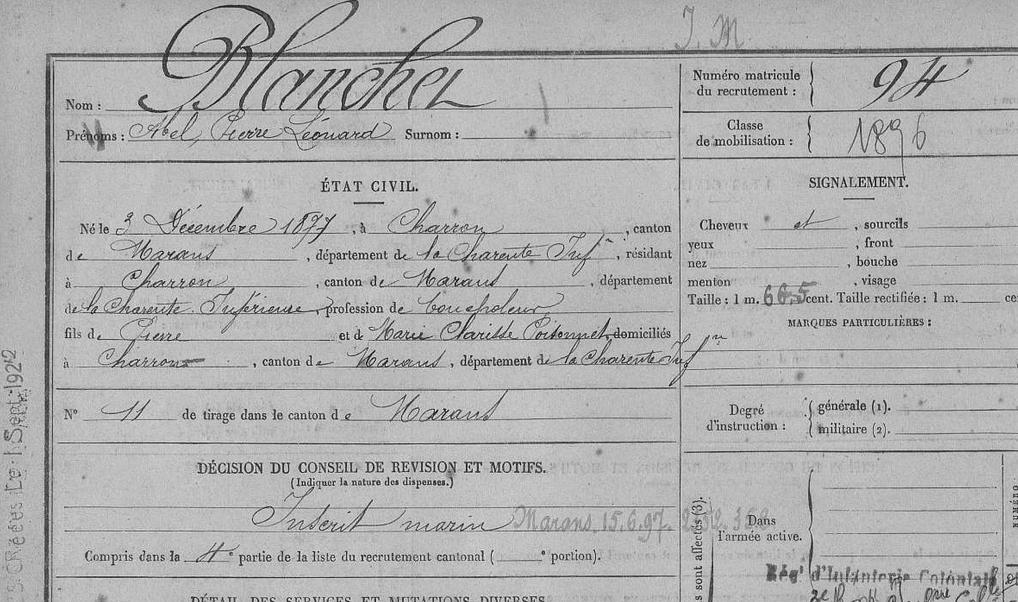 I. M
Nom : Blanchet
Prénoms : Abel, Pierre Léonard Surnom :
Numéro matricule
du recrutement : 94
Classe
de mobilisation : 1896
ÉTAT CIVIL.
Né le 3 Décembre 1877, à Charron, canton
de Marans, département de la Charente Infre, résidant
à Charron, canton de Marans, département
de la Charente Inférieure, profession de boucholeur
fils de Pierre et de Marie Clarisse domiciliés
à Charron, canton de Marans, département de la Charente Infre
N° 11 de tirage dans le canton de Marans
DÉCISION DU CONSEIL DE REVISION ET MOTIFS.
(Indiquer la nature des dispenses.)
Inscrit marin Marans. 15.6.97.
Compris dans la 4e partie de la liste du recrutement cantonal ( e portion).
DÉTAIL DES SERVICES ET MUTATIONS DIVERSES
SIGNALEMENT.
Cheveux et , sourcils
yeux , front
nez , bouche
menton , visage
Taille : 1 m. 665 cent. Taille rectifiée : 1 m. ce
MARQUES PARTICULIÈRES :
Degré
d'instruction : générale (1).
militaire (2).
Dans
l'armée active.
s sont affectés (3).
NUMÉRO
Rég' d'Infanterie Coloniale
Sept. 1922